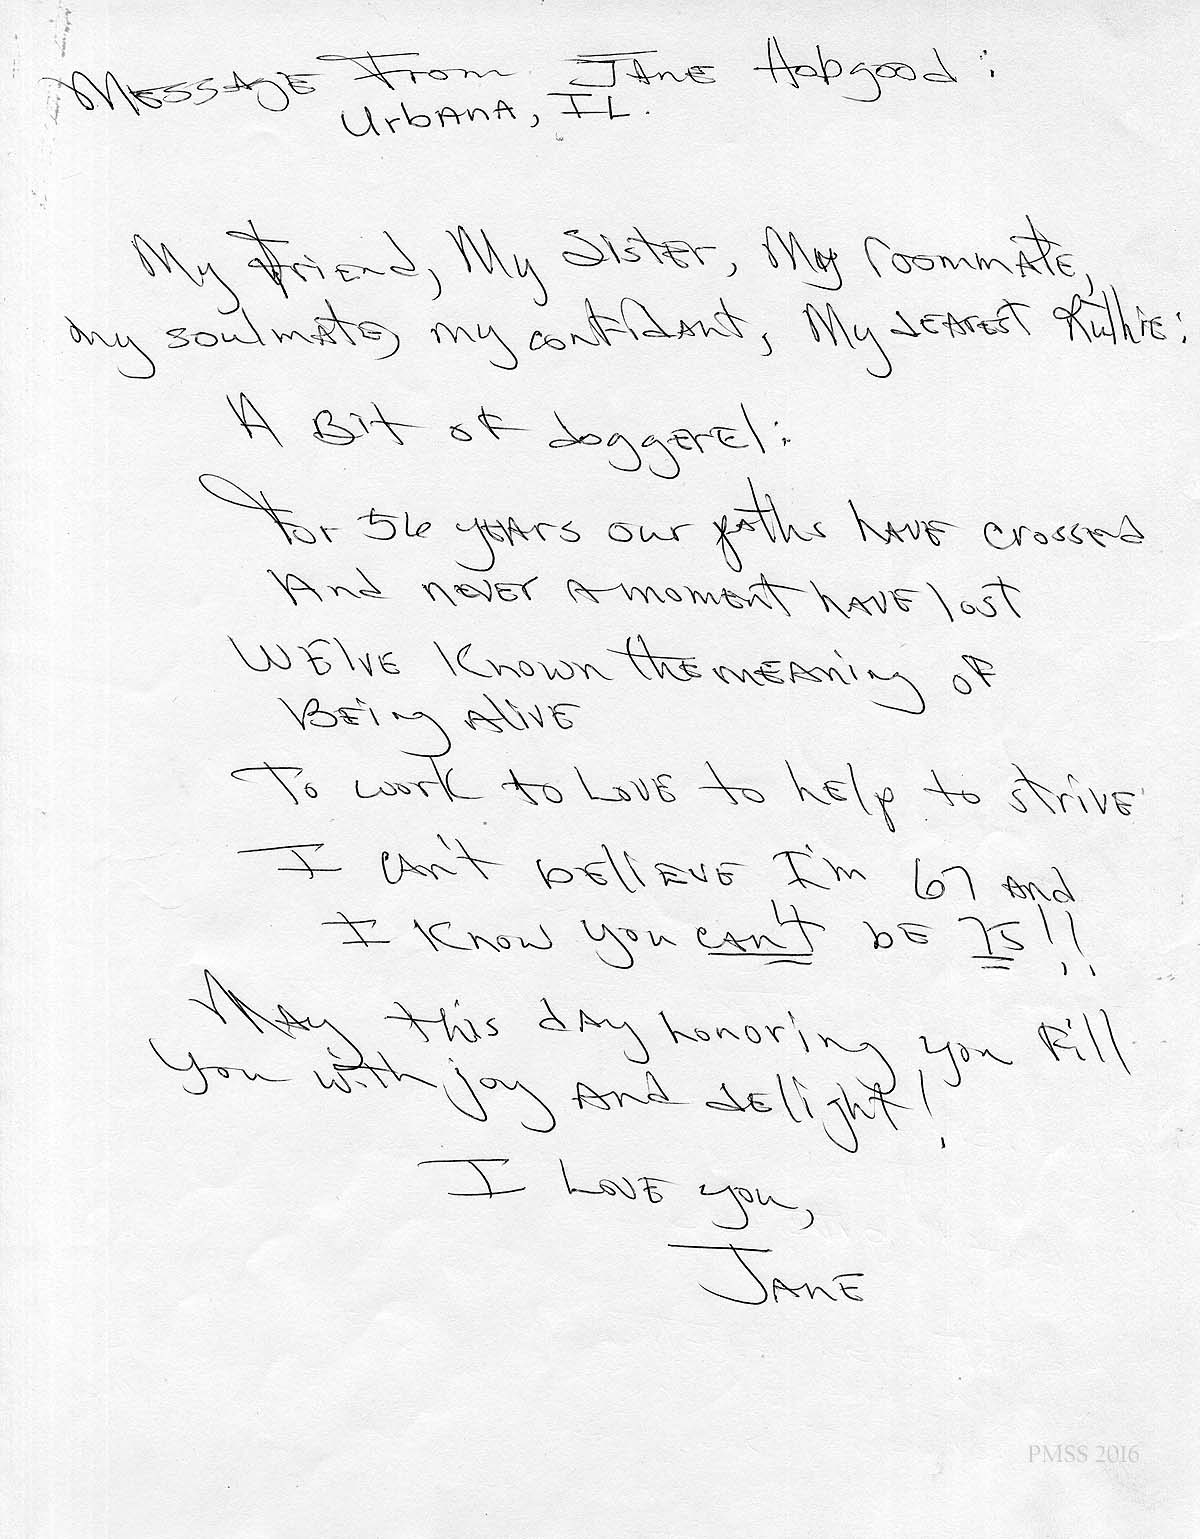 Message From Jane Hobgood:
Urbana, IL.
My Friend, My Sister, My roommate,
my soulmate, my confidant, My dearest Ruthie:
A Bit of doggerel:
For 56 years our paths have crossed
And never a moment have lost
We've known the meaning of
Being alive
To work to love to help to strive
I can't believe I'm 67 and
I know you can't be 75!!
May this day honoring you fill
you with joy and delight!
I love you,
Jane
PMSS 2016